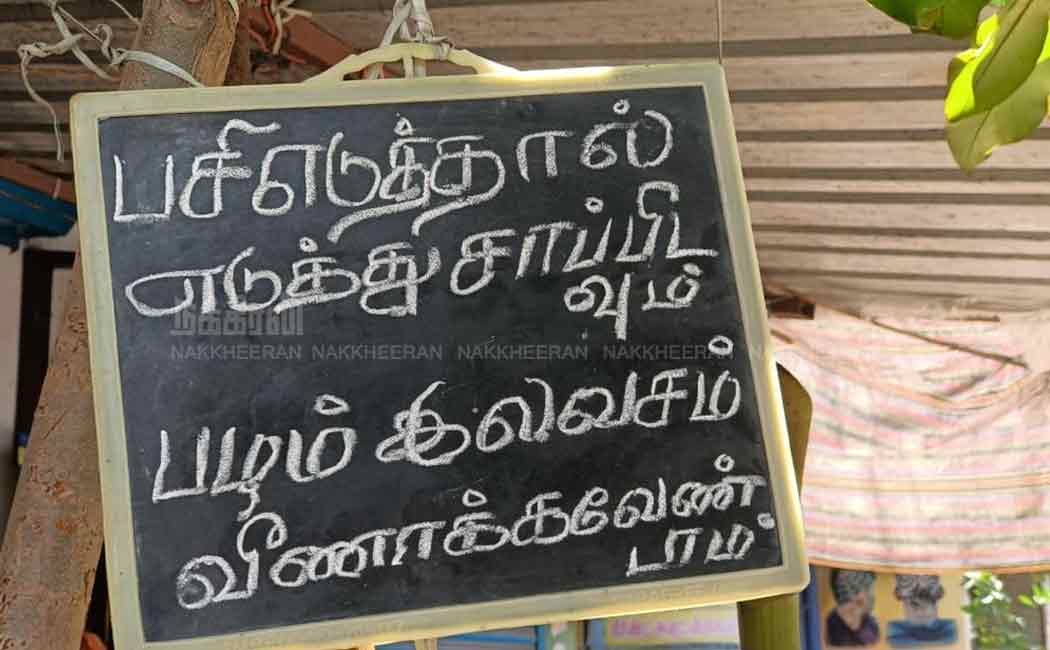 பசிஎடுத்தால்
எடுத்து சாப்பிட
வும்
நக்கீரன்
NAKKHEERAN NAKKHEERAN NAKKHEERAN NAKKHEERAN NAKKHEERAN
பழம் இலவசம்
வீணாக்கவேண்
டாம்